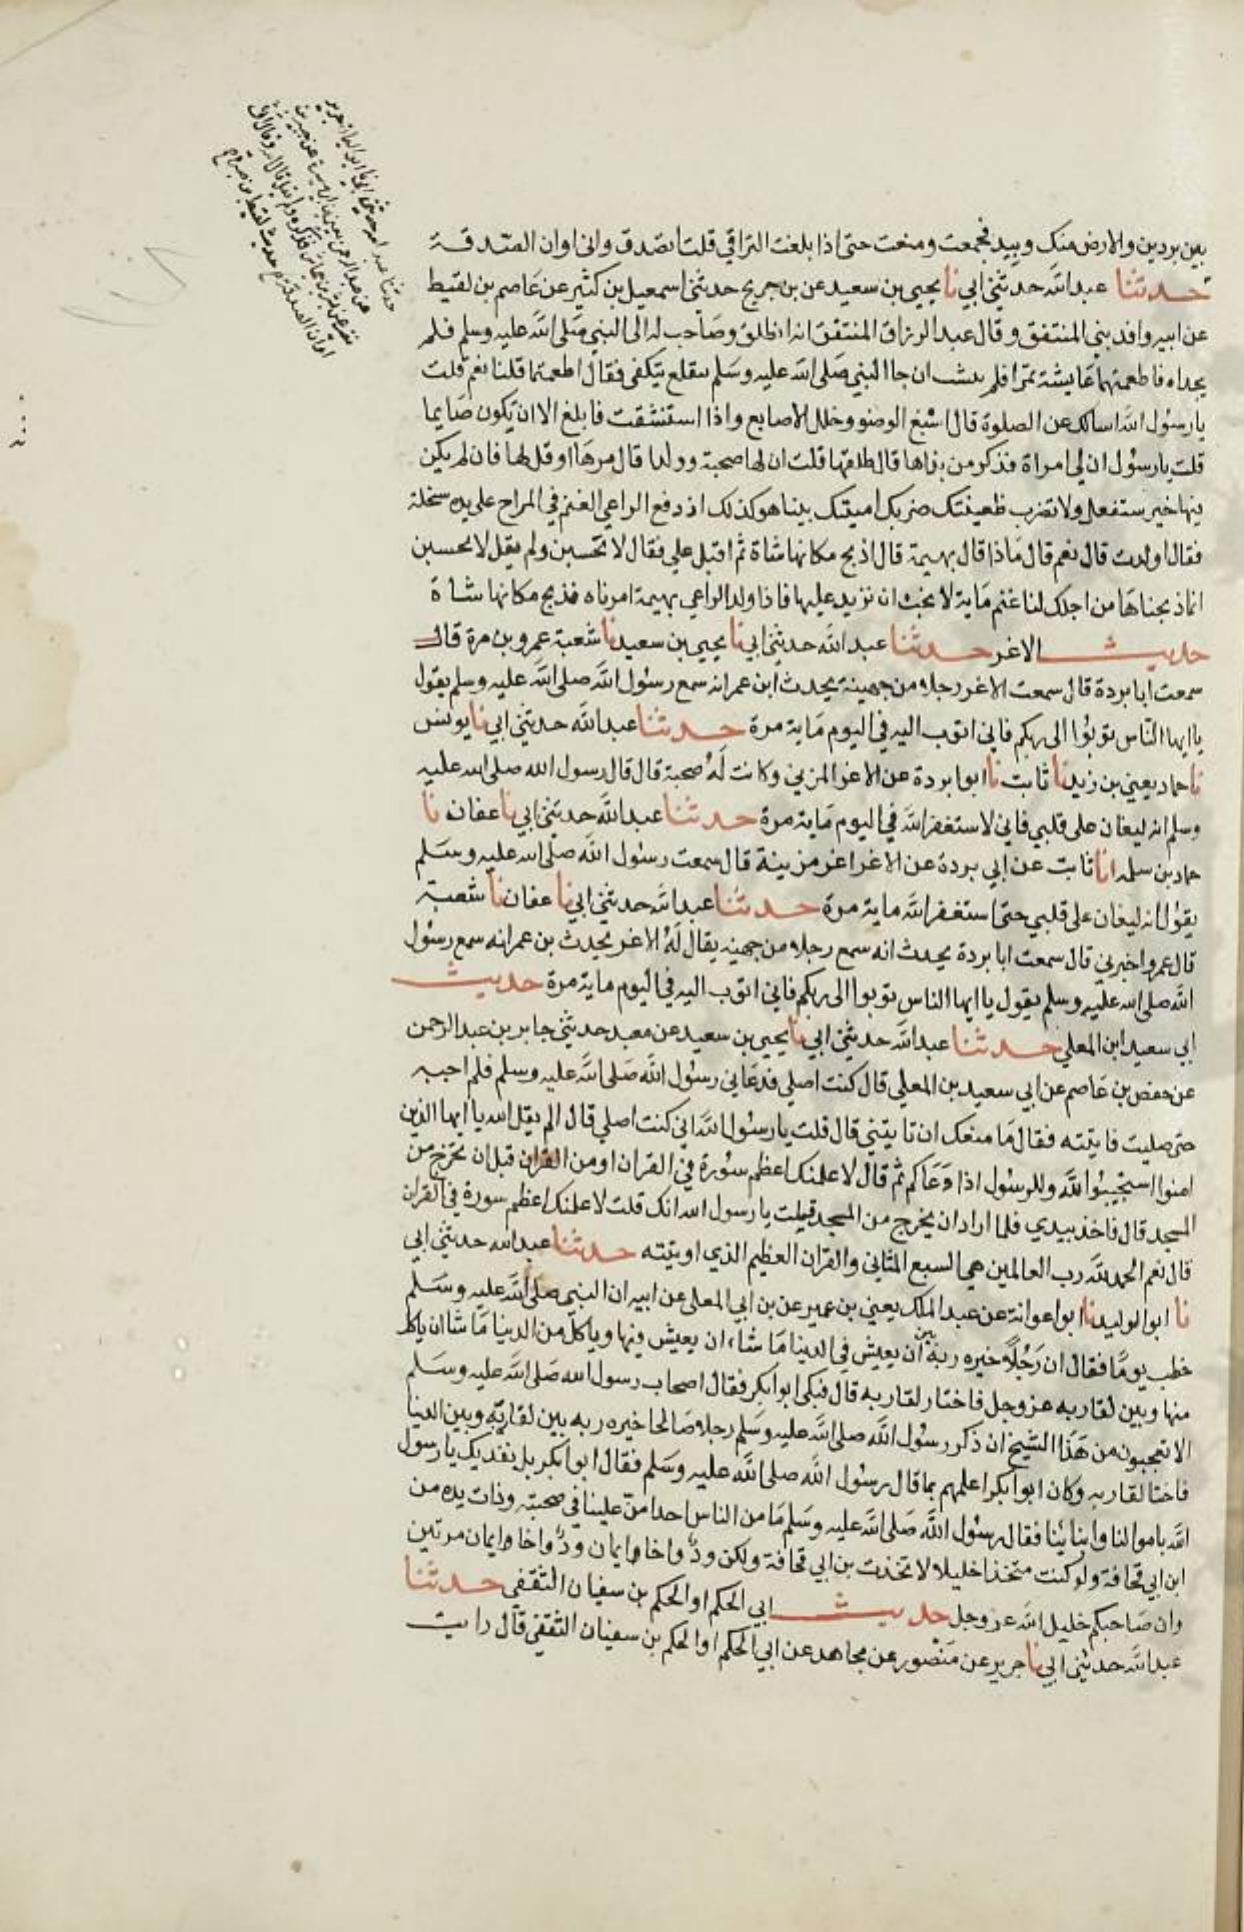 بين بردين والارض منك وبيد فجمعت ومنعت حتى اذا بلغت التراقي قلت اتصدق وانى اوان الصدقة
حدثنا عبدالله حدثني ابي نا يحيى بن سعيد عن بن جريج حدثني اسمعيل بن كثير عن عاصم بن لقيط
عن ابيه وافد بني المنتفق وقال عبد الرزاق المنتفق انه انطلق وصاحب له الى النبي صلى الله عليه وسلم فلم
يجداه فاطعمتهما عايشة تمرا فلم ننشب ان جا النبي صلى الله عليه وسلم يتقلع يتكفى فقال اطعمتما قلنا نعم قلت
يا رسول الله اسالك عن الصلوة قال اسبغ الوضو وخلل الاصابع واذا استنشقت فابلغ الا ان تكون صايما
قلت يا رسول ان لي امراة فذكر من بذاها قال طلقها قلت ان لها صحبة وولدا قال مرها او قل لها فان لم يكن
فيها خير ستفعل ولا تضرب ظعينتك ضربك اميتك بينا هو كذلك اذ دفع الراعي الغنم في المراح على يده سخلة
فقال اولدت قال نعم قال ماذا قال بهيمة قال اذبح مكانها شاة ثم اقبل علي فقال لا تحسبن ولم يقل لا يحسبن
انما ذبحناها من اجلك لنا غنم ماية لا نحب ان نزيد عليها فاذا ولد الراعي بهيمة امرناه فذبح مكانها شاة
حديث الاغر حدثنا عبدالله حدثني ابي نا يحيى بن سعيد نا شعبة عمرو بن مرة قال
سمعت ابا بردة قال سمعت الاغر رجلا من جهينة يحدث ابن عمر انه سمع رسول الله صلى الله عليه وسلم يقول
يا ايها الناس توبوا الى ربكم فاني اتوب اليه في اليوم ماية مرة حدثنا عبدالله حدثني ابي نا يونس
نا حماد يعني بن زيد نا ثابت نا ابوا بردة عن الاغر المزني وكانت له صحبة قال قال رسول الله صلى الله عليه
وسلم انه ليغان على قلبي فاني لاستغفر الله في اليوم ماية مرة حدثنا عبدالله حدثني ابي نا عفان نا
حماد بن سلمه انا ثابت عن ابي بردة عن الاغر اغر مزينة قال سمعت رسول الله صلى الله عليه وسلم
يقول انه ليغان على قلبي حتى استغفر الله ماية مرة حدثنا عبدالله حدثني ابي نا عفان نا شعبة
قال عمرو اخبرني قال سمعت ابا بردة يحدث انه سمع رجلا من جهينه يقال له الاغر يحدث بن عمر انه سمع رسول
الله صلى الله عليه وسلم يقول يا ايها الناس توبوا الى ربكم فاني اتوب اليه في اليوم ماية مرة حديث
ابي سعيد ابن المعلى حدثنا عبدالله حدثني ابي نا يحيى بن سعيد عن معبد حدثني جابر بن عبد الرحمن
عن حفص بن عاصم عن ابي سعيد بن المعلى قال كنت اصلي فدعاني رسول الله صلى الله عليه وسلم فلم اجبه
حتى صليت فاتيته فقال ما منعك ان تاتيني قال قلت يا رسول الله اني كنت اصلي قال الم يقل الله يا ايها الذين
امنوا استجيبوا لله وللرسول اذا دعاكم ثم قال لاعلمنك اعظم سورة في القران او من القران قبل ان تخرج من
المسجد قال فاخذ بيدي فلما اراد ان يخرج من المسجد قلت يا رسول الله انك قلت لاعلمنك اعظم سورة في القران
قال نعم الحمد لله رب العالمين هي السبع المثاني والقران العظيم الذي اوتيته حدثنا عبدالله حدثني ابي
نا ابوا الوليد نا ابوا عوانة عن عبد الملك يعني بن عمير عن بن ابي المعلى عن ابيه ان النبي صلى الله عليه وسلم
خطب يوما فقال ان رجلا خيره ربه بين ان يعيش في الدنيا ما شاء ان يعيش فيها وياكل من الدنيا ما شا ان ياكل
منها وبين لقا ربه عز وجل فاختار لقا ربه قال فبكى ابوا بكر فقال اصحاب رسول الله صلى الله عليه وسلم
الا تعجبون من هذا الشيخ ان ذكر رسول الله صلى الله عليه وسلم رجلا صالحا خيره ربه بين لقا ربه وبين الدنيا
فاختا لقا ربه وكان ابوا بكر اعلمهم بما قال رسول الله صلى الله عليه وسلم فقال ابوا بكر بل نفديك يا رسول
الله باموالنا وابنائنا فقال رسول الله صلى الله عليه وسلم ما من الناس احد امن علينا في صحبته وذات يده من
ابن ابي قحافة ولو كنت متخذا خليلا لاتخذت بن ابي قحافة ولكن ود واخا وايمان ود واخا وايمان مرتين
وان صاحبكم خليل الله عز وجل حديث ابي الحكم او الحكم بن سفيان الثقفي حدثنا
عبدالله حدثني ابي نا جرير عن منصور عن مجاهد عن ابي الحكم او الحكم بن سفيان الثقفي قال رايت